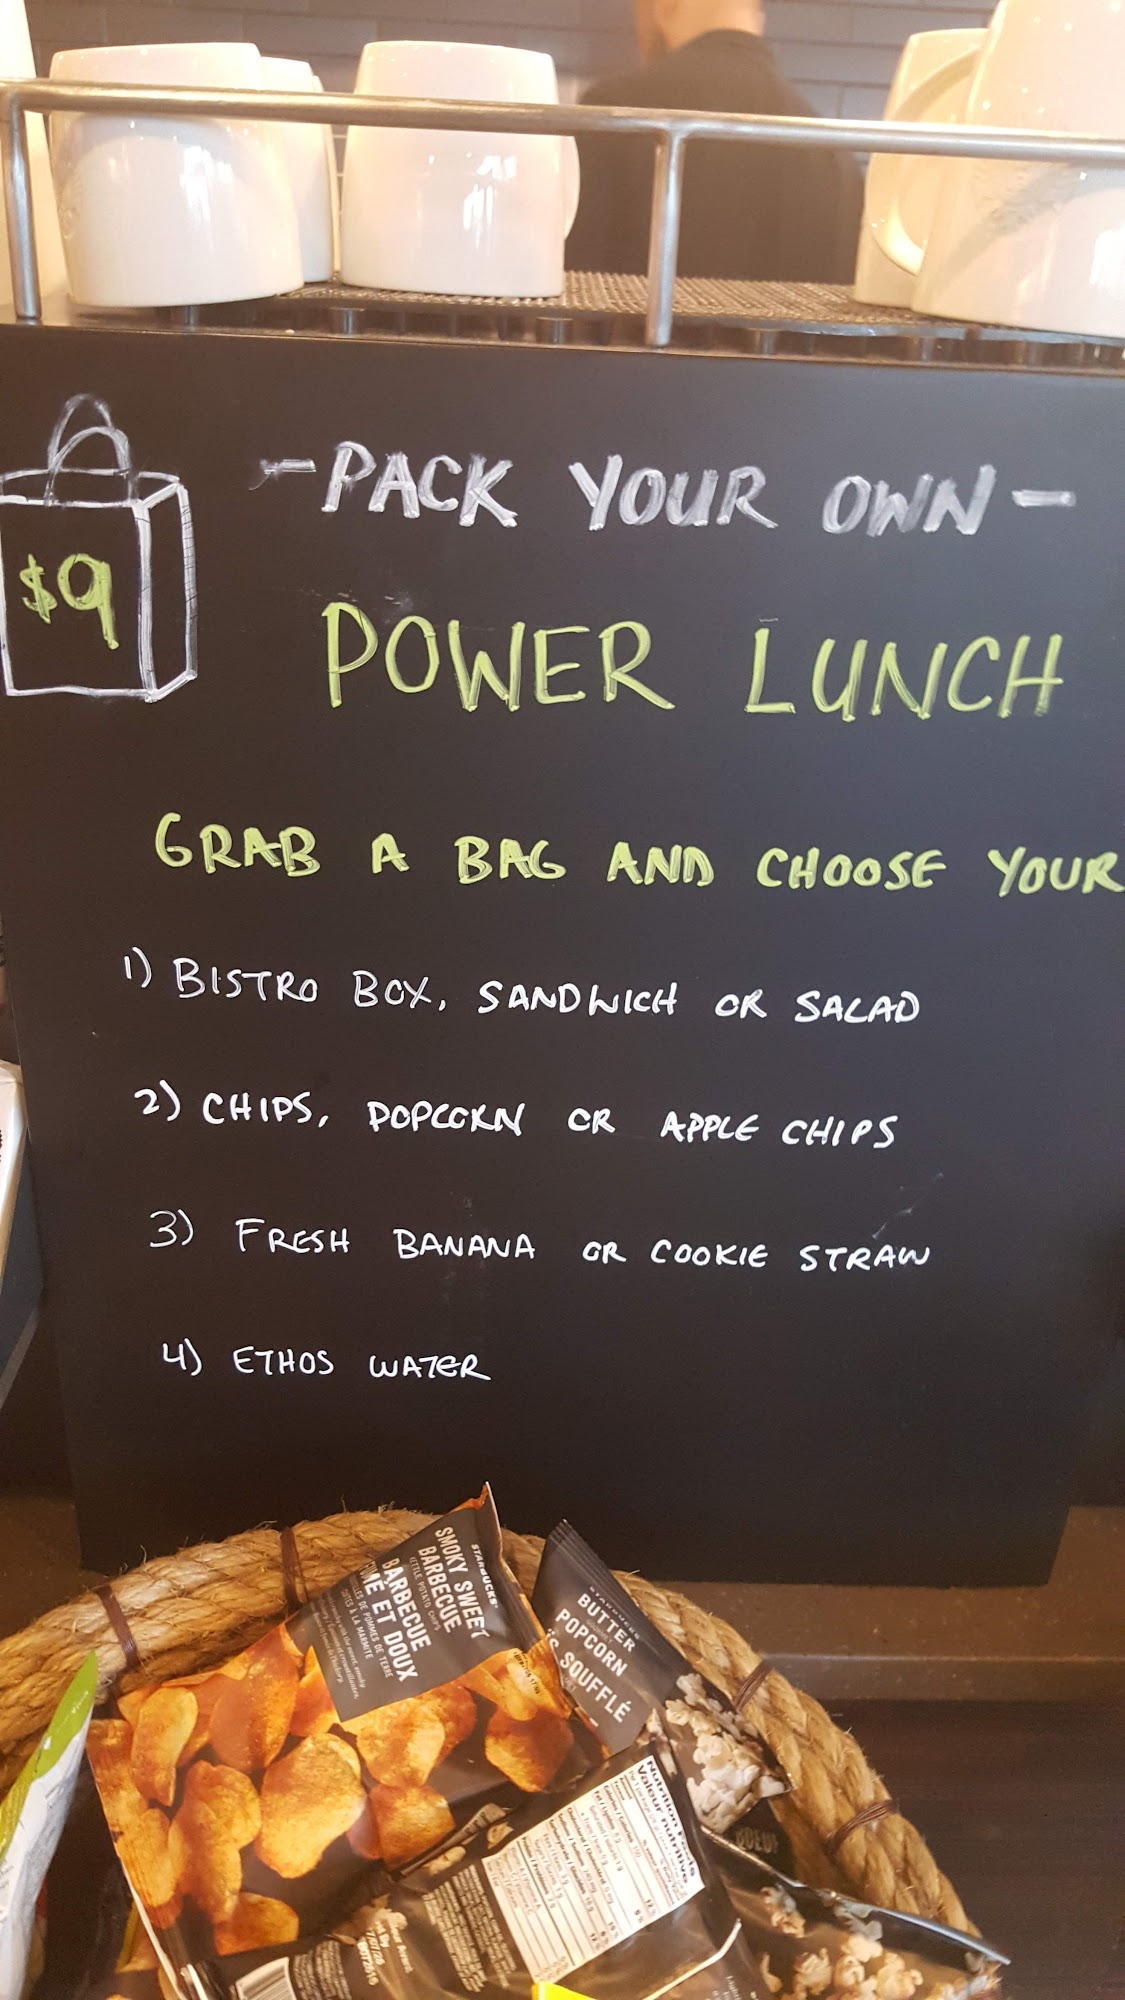 $9
-PACK YOUR OWN-
POWER LUNCH
GRAB A BAG AND CHOOSE YOUR
1) BISTRO BOX, SANDWICH OR SALAD
2) CHIPS, POPCORN OR APPLE CHIPS
3) FRESH BANANA OR COOKIE STRAW
4) ETHOS WATER
STARBUCKS
SMOKY SWEET
BARBECUE
KETTLE POTATO CHIPS
BARBECUE
ET DOUX
DE POMMES DE TERRE
À LA MARMITE
STARBUCKS
BUTTER
POPCORN
SOUFFLÉ
Nutrition Facts
Valeur nutritive